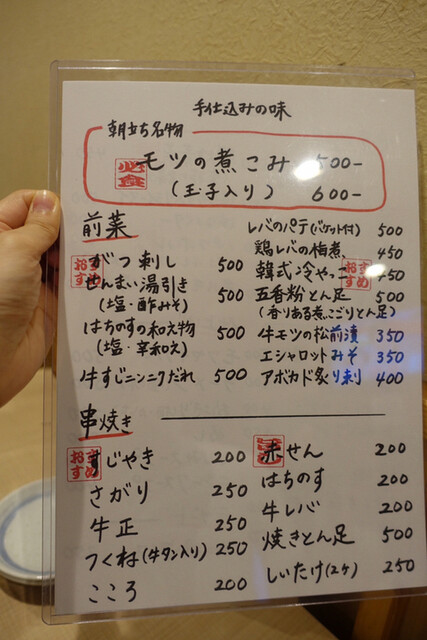 手仕込みの味
朝立ち名物
必食
モツの煮こみ 500-
(玉子入り) 600-
前菜
がつ刺し 500
おすすめ
せんまい湯引き 500
(塩・酢みそ)
はちのすの和え物 500
(塩・辛和え)
牛すじニンニクだれ 500
レバのパテ(バケット付) 500
鶏レバの梅煮 450
韓式冷やっこ 450
おすすめ
五香粉とん足 500
(香りある煮こごりとん足)
牛モツの松前漬 350
エシャロットみそ 350
アボカド炙り刺 400
串焼き
おすすめ
すじやき 200
さがり 250
牛正 250
つくね(牛タン入り) 250
こころ 200
赤せん 200
はちのす 200
牛レバ 200
焼きとん足 500
しいたけ(2ヶ) 250